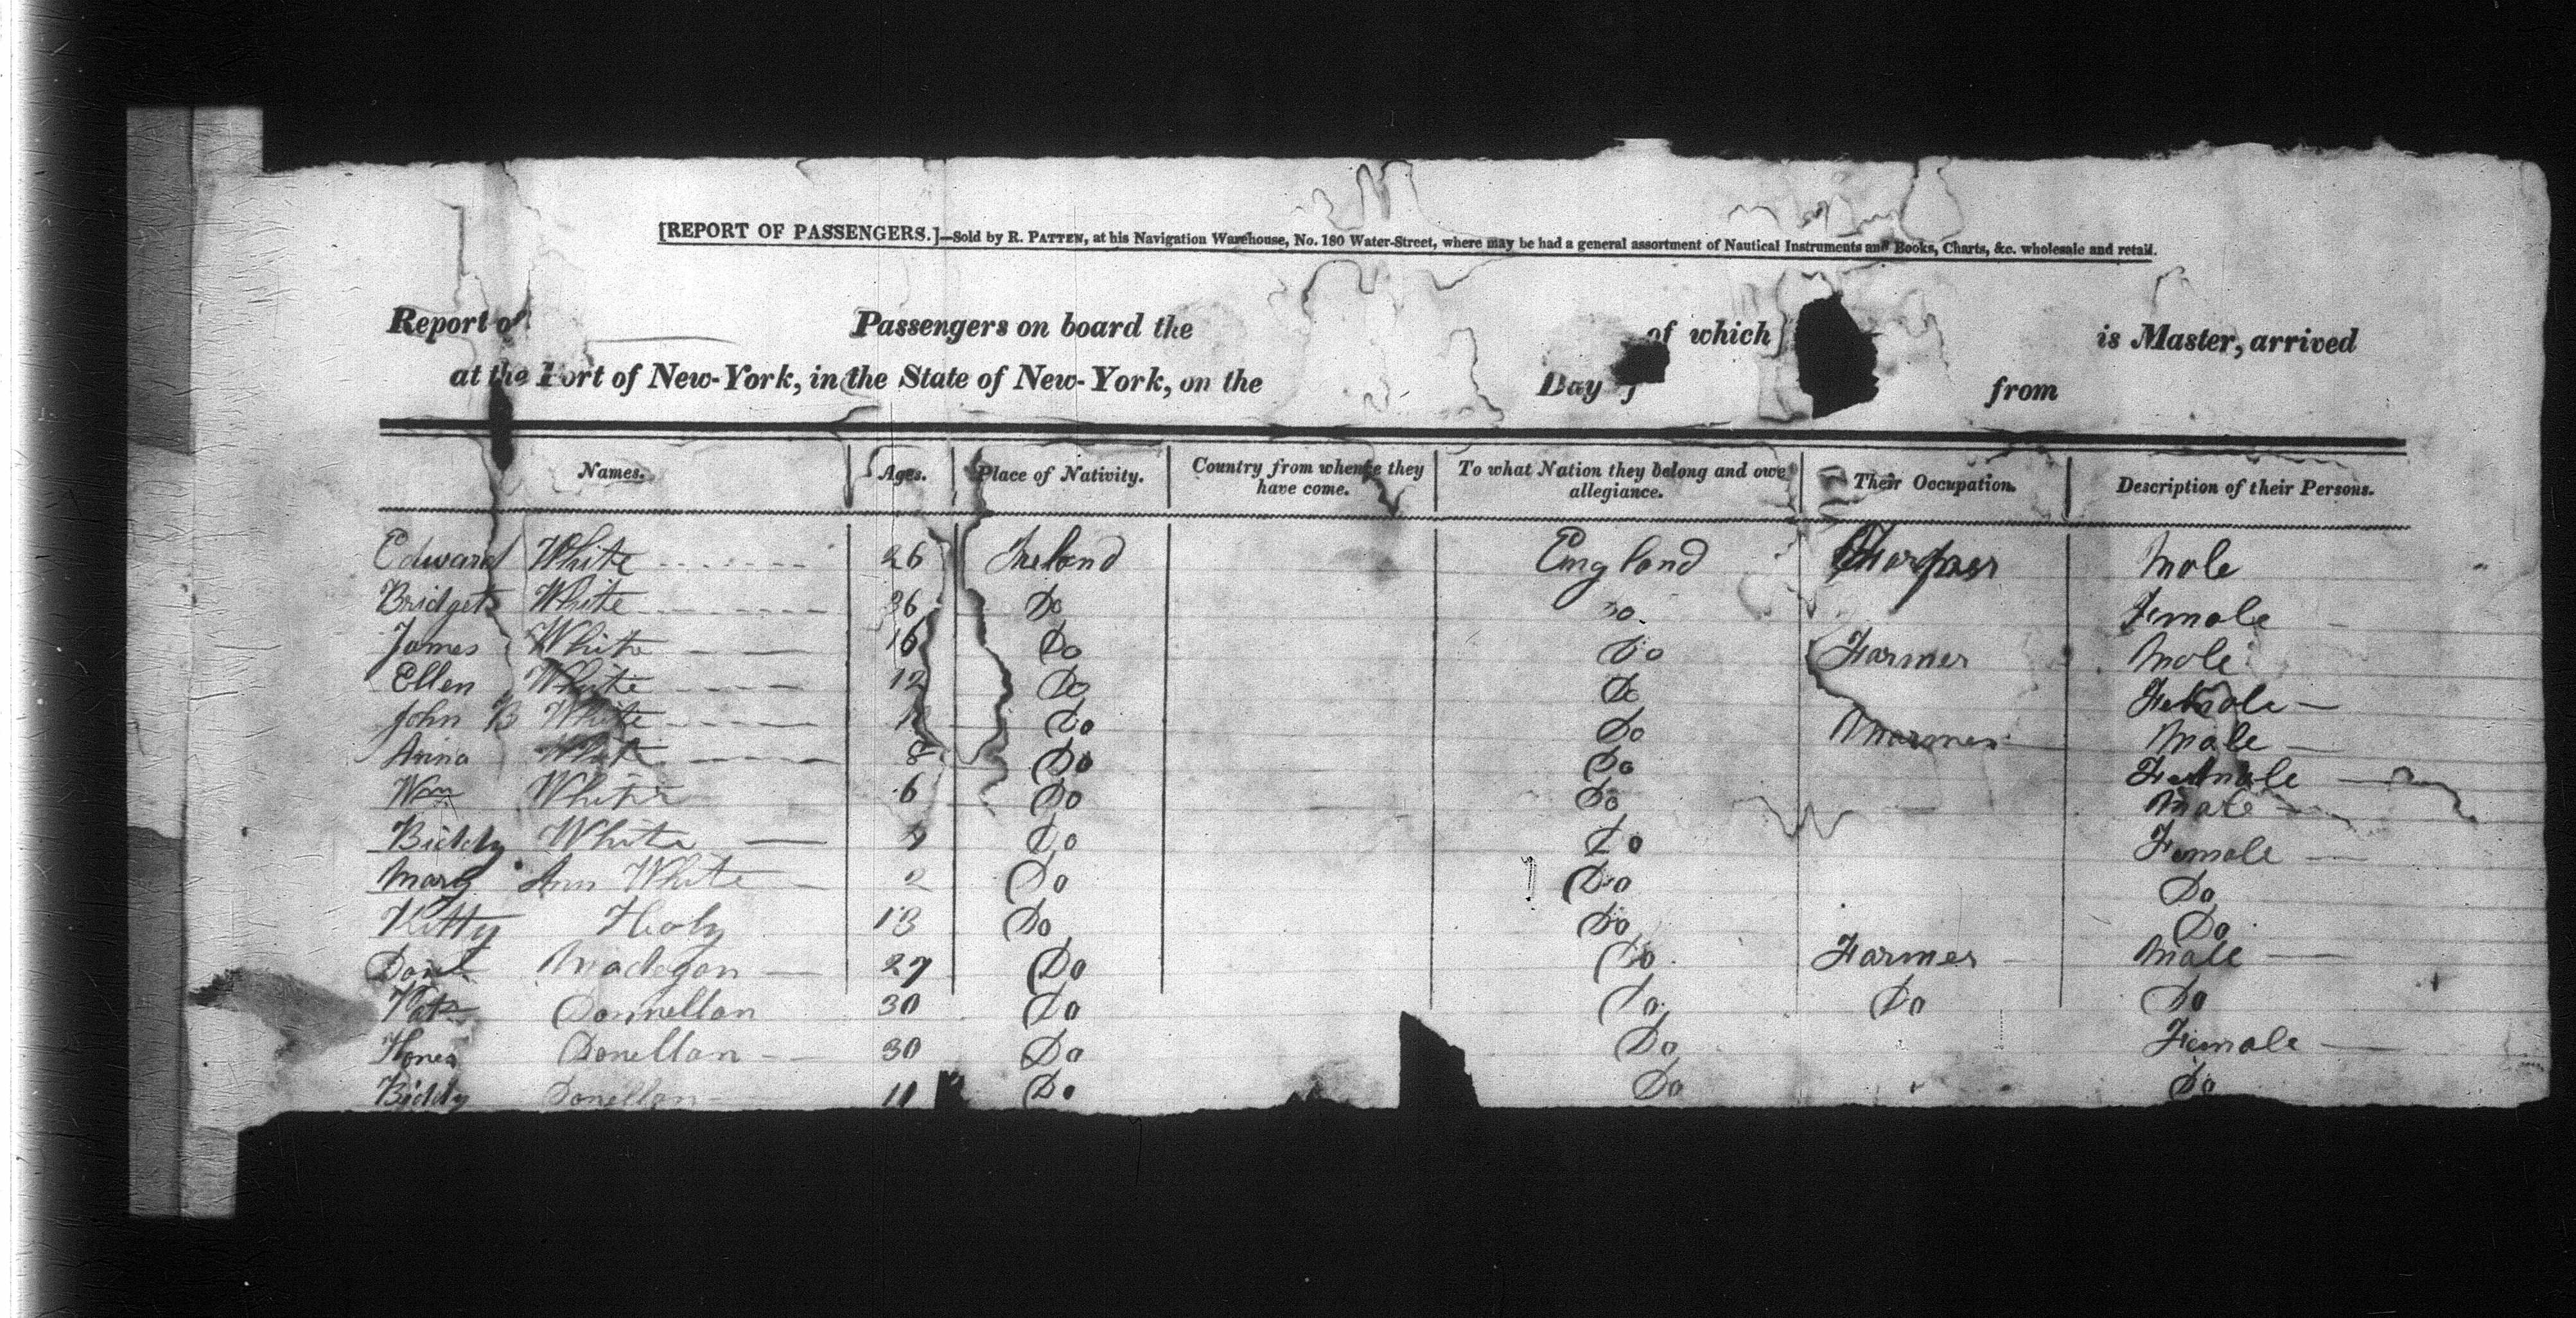 [REPORT OF PASSENGERS.]—Sold by R. PATTEN, at his Navigation Warehouse, No. 180 Water-Street, where may be had a general assortment of Nautical Instruments and Books, Charts, &c. wholesale and retail.
Report of Passengers on board the of which is Master, arrived
at the Port of New-York, in the State of New-York, on the Day from
Names. Ages. Place of Nativity. Country from whence they have come. To what Nation they belong and owe allegiance. Their Occupation. Description of their Persons.
Edward White 26 Ireland England Male
Bridget White 36 Do Do Female
James White 16 Do Do Farmer Male
Ellen White 12 Do Do Female
John B White Do Do Male
Anna White 8 Do Do Female
Wm White 6 Do Do Male
Biddy White Do Do Female
Mary Ann White 2 Do Do Do
Kitty Healy 13 Do Do Do
Danl Madegan 27 Do Do Farmer Male
Pat Donnellan 30 Do Do Do Do
Honea Donellan 30 Do Do Female
Biddy Donellan 11 Do Do Do